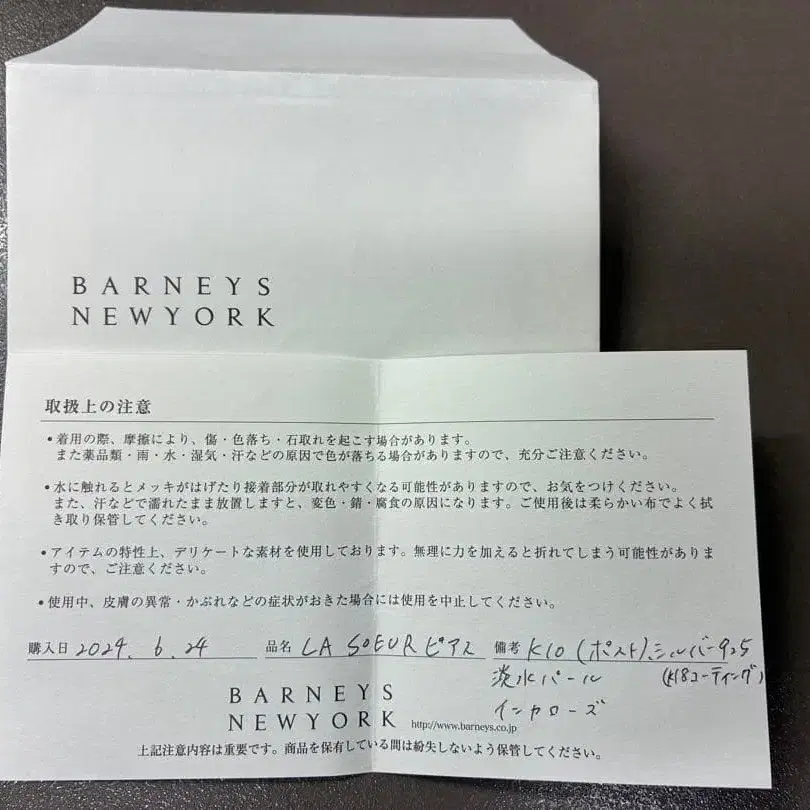 BARNEYS
NEWYORK
取扱上の注意
•着用の際、摩擦により、傷・色落ち・石取れを起こす場合があります。
また薬品類・雨・水・湿気・汗などの原因で色が落ちる場合がありますので、充分ご注意ください。
•水に触れるとメッキがはげたり接着部分が取れやすくなる可能性がありますので、お気をつけください。
また、汗などで濡れたまま放置しますと、変色・錆・腐食の原因になります。ご使用後は柔らかい布でよく拭
き取り保管してください。
•アイテムの特性上、デリケートな素材を使用しております。無理に力を加えると折れてしまう可能性がありま
すので、ご注意ください。
•使用中、皮膚の異常・かぶれなどの症状がおきた場合には使用を中止してください。
購入日 2024. 6. 24 品名 LA SOEUR ピアス 備考 K10 (ポスト)、シルバー925
淡水パール (K18コーティング)
インカローズ
BARNEYS
NEWYORK http://www.barneys.co.jp
上記注意内容は重要です。商品を保有している間は紛失しないよう保管してください。